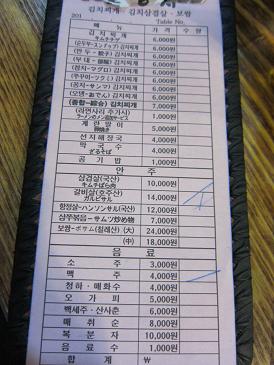 김치찌개 김치삼겹살·보쌈
201 Table No.
메 뉴 가 격 수 량
김 치 찌 개 6,000원
キムチチゲ
김치찌개 6,000원
(만두-餃子) 김치찌개 6,000원
김치찌개 6,000원
(참치-マグロ) 김치찌개 6,000원
김치찌개 6,000원
(꽁치-サンマ) 김치찌개 6,000원
(오뎅-おでん) 김치찌개 6,000원
(종합-綜合) 김치찌개 7,000원
(라면사리 추가시) 1,000원
계 란 말 이 5,000원
선지해장국 4,000원
막 국 수 4,000원
ざるそば
공 기 밥 1,000원
안 주
삼겹살(국산) 10,000원
キムチばら肉
갈비살(호주산) 14,000원
カルビサル
항정살-ハンソンサル(국산) 12,000원
삼무볶음-サムツ炒め物 7,000원
보쌈-ポサム(칠레산) (大) 24,000원
(中) 18,000원
음 료
소 주 3,000원
맥 주 4,000원
청하·매화수 4,000원
오 가 피 5,000원
백세주·산사춘 6,000원
매 취 순 8,000원
복 분 자 10,000원
음 료 수 1,000원
합 계 ₩